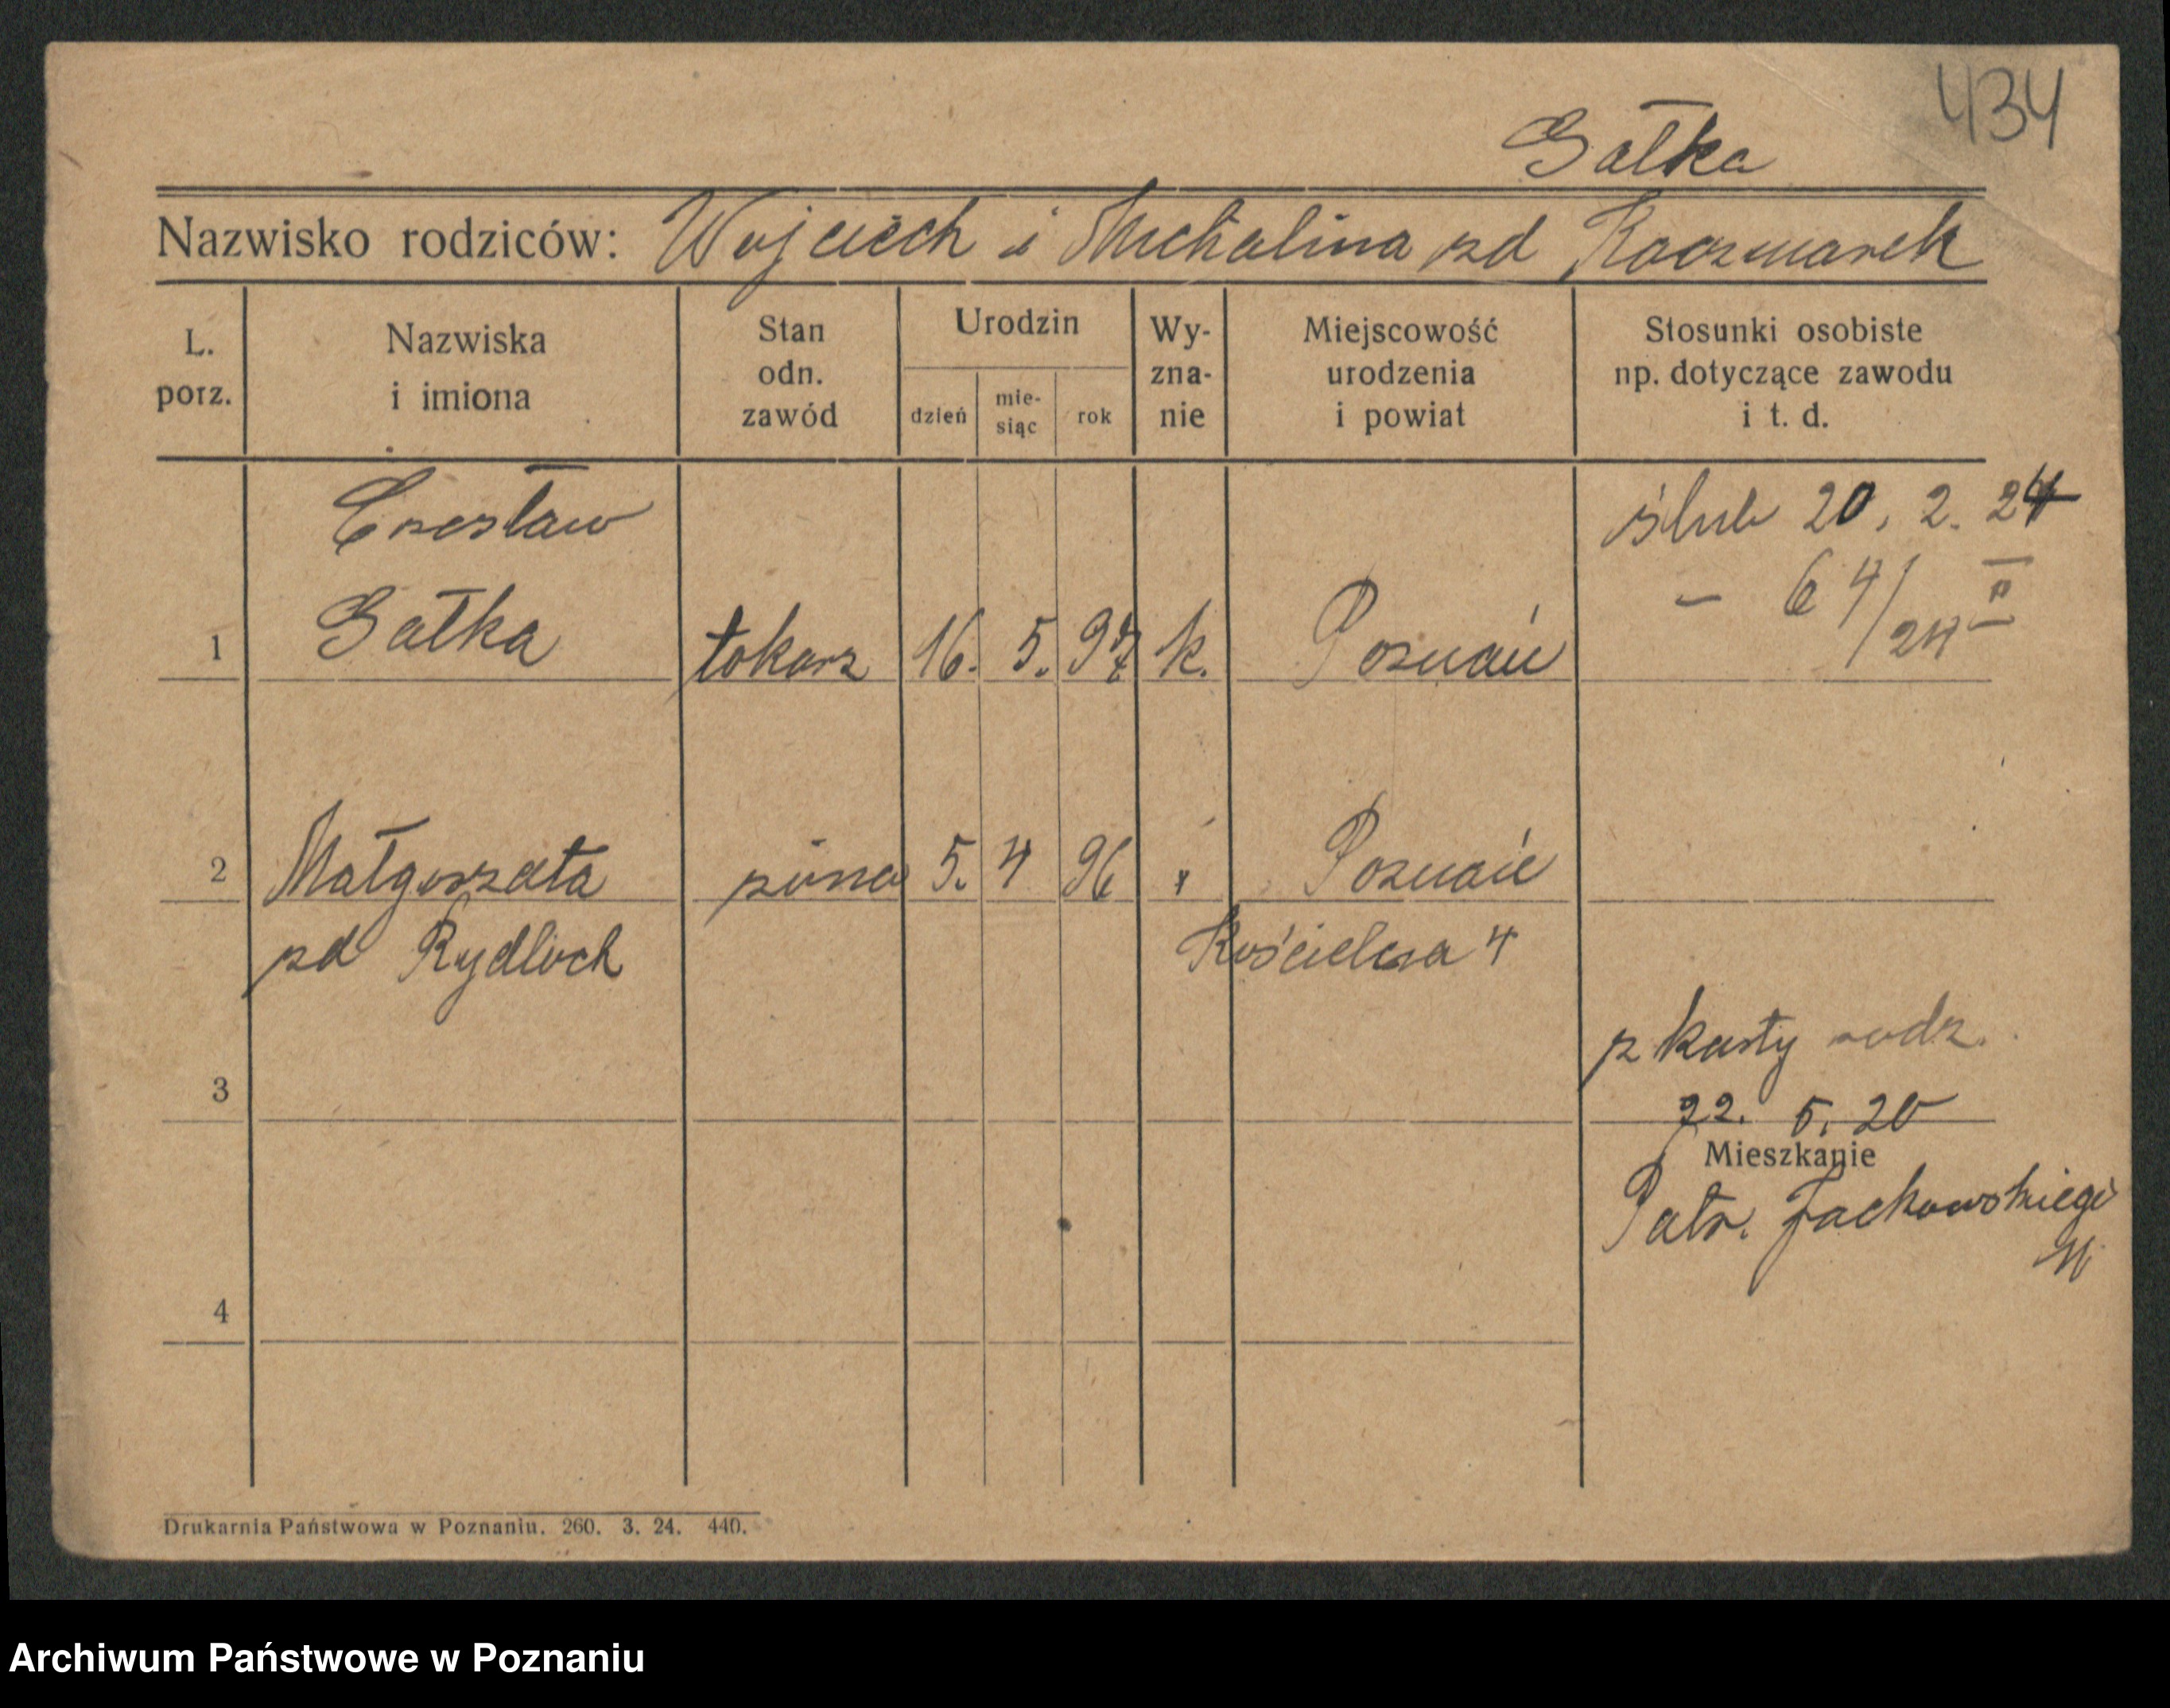 434
Gałka
Nazwisko rodziców: Wojciech i Michalina zd Kaczmarek
L. porz.
Nazwiska i imiona
Stan odn. zawód
Urodzin
dzień
mie-siąc
rok
Wy-zna-nie
Miejscowość urodzenia i powiat
Stosunki osobiste np. dotyczące zawodu i t. d.
Czesław
ślub 20. 2. 24
- 64/24 II
1 Gałka tokarz 16. 5. 97 k. Poznań
2 Małgorzata żona 5. 4 96 " Poznań
zd Rydlich Kościelna 4
z karty rodz.
3
22. 5. 20
Mieszkanie
Patr. Jackowskiego
4
Drukarnia Państwowa w Poznaniu. 260. 3. 24. 440.
Archiwum Państwowe w Poznaniu